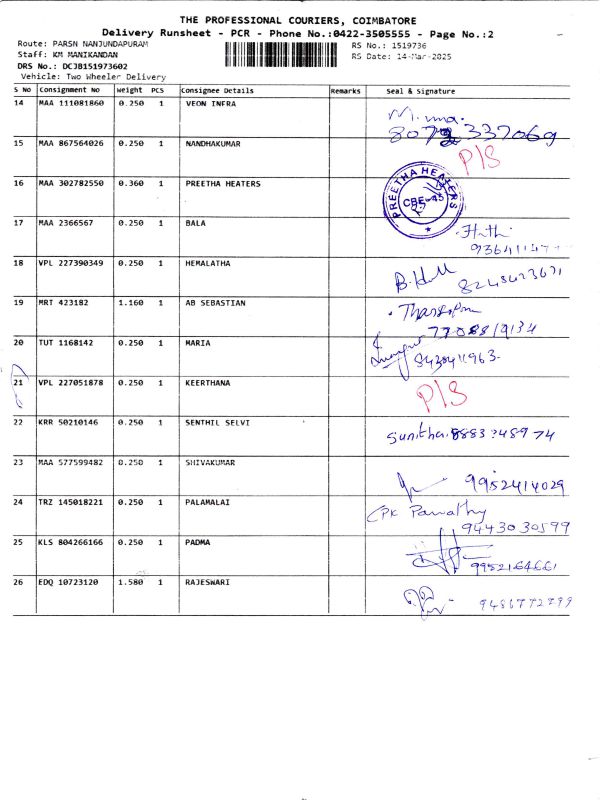 THE PROFESSIONAL COURIERS, COIMBATORE
Delivery Runsheet - PCR - Phone No.:0422-3505555 - Page No.:2
Route: PARSN NANJUNDAPURAM
RS No.: 1519736
Staff: KM MANIKANDAN
RS Date: 14-Mar-2025
DRS No.: DCJB151973602
Vehicle: Two Wheeler Delivery
S No Consignment No Weight PCS Consignee Details Remarks Seal & Signature
14 MAA 111081860 0.250 1 VEON INFRA
337069
15 MAA 867564026 0.250 1 NANDHAKUMAR P/S
16 MAA 302782550 0.360 1 PREETHA HEATERS
PREETHA HEATERS
CBE-45
17 MAA 2366567 0.250 1 BALA
18 VPL 227390349 0.250 1 HEMALATHA
19 MRT 423182 1.160 1 AB SEBASTIAN
7708819134
20 TUT 1168142 0.250 1 MARIA
8438411963
21 VPL 227051878 0.250 1 KEERTHANA P/S
22 KRR 50210146 0.250 1 SENTHIL SELVI
Sunitha
23 MAA 577599482 0.250 1 SHIVAKUMAR
9952414029
24 TRZ 145018221 0.250 1 PALAMALAI
CPK Parvathy
9443030599
25 KLS 804266166 0.250 1 PADMA
9952164661
26 EDQ 10723120 1.580 1 RAJESWARI